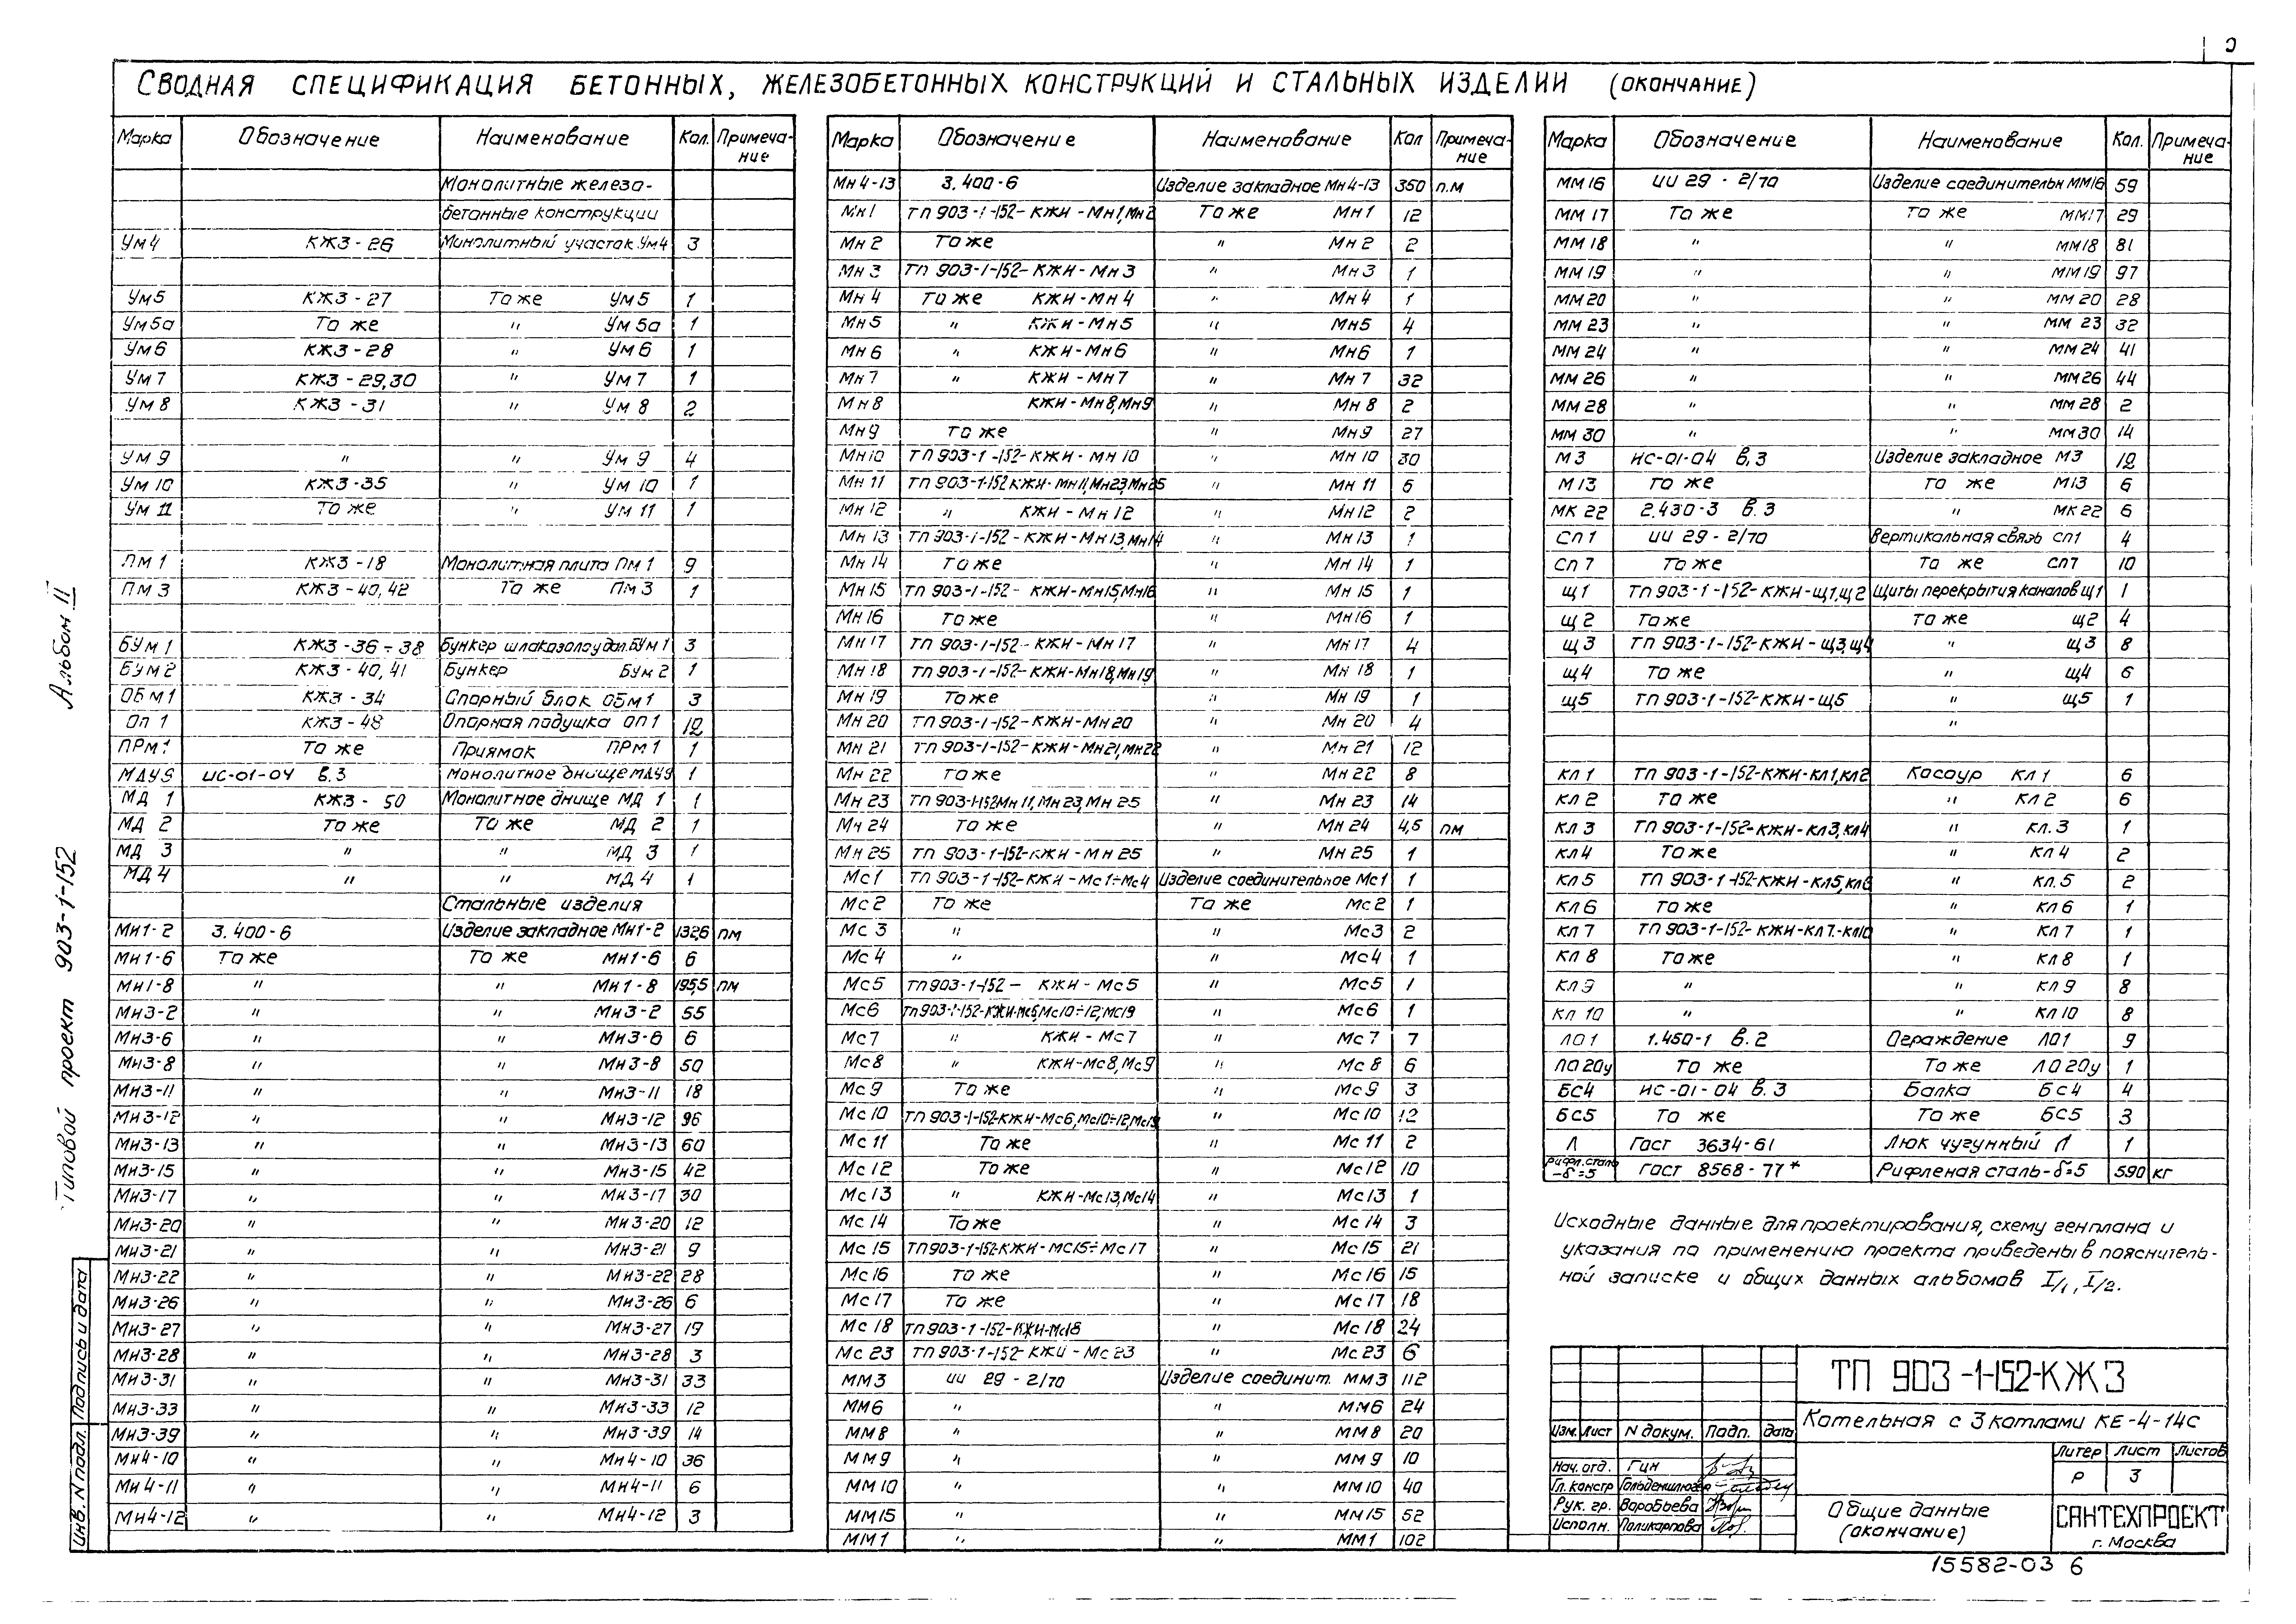 Сводная спецификация бетонных, железобетонных конструкций и стальных изделии (окончание)
Марка Обозначение Наименование Кол. Примеча-
ние
Монолитные железо-
бетонные конструкции
Ум4 КЖ3-26 Монолитный участок Ум4 3
Ум5 КЖ3-27 То же Ум5 1
Ум5а То же " Ум5а 1
Ум6 КЖ3-28 " Ум6 1
Ум7 КЖ3-29,30 " Ум7 1
Ум8 КЖ3-31 " Ум8 2
Ум9 " " Ум9 4
Ум10 КЖ3-35 " Ум10 1
Ум11 То же " Ум11 1
Пм1 КЖ3-18 Монолитная плита Пм1 9
Пм3 КЖ3-40,42 То же Пм3 1
БУм1 КЖ3-36÷38 Бункер шлакозолоудал. БУм1 3
БУм2 КЖ3-40,41 Бункер БУм2 1
ОБм1 КЖ3-34 Опорный блок ОБм1 3
Оп1 КЖ3-48 Опорная подушка оп1 12
ПРм1 То же Приямок ПРм1 1
МДУ9 ИС-01-04 в.3 Монолитное днище МДУ9 1
МД 1 КЖ3-50 Монолитное днище МД 1 1
МД 2 То же То же МД 2 1
МД 3 " " МД 3 1
МД 4 " " МД 4 1
Стальные изделия
Мн1-2 3.400-6 Изделие закладное Мн1-2 132,6 пм
Мн1-6 То же То же Мн1-6 6
Мн1-8 " " Мн1-8 195,5 пм
Мн3-2 " " Мн3-2 55
Мн3-6 " " Мн3-6 6
Мн3-8 " " Мн3-8 50
Мн3-11 " " Мн3-11 18
Мн3-12 " " Мн3-12 96
Мн3-13 " " Мн3-13 60
Мн3-15 " " Мн3-15 42
Мн3-17 " " Мн3-17 30
Мн3-20 " " Мн3-20 12
Мн3-21 " " Мн3-21 9
Мн3-22 " " Мн3-22 28
Мн3-26 " " Мн3-26 6
Мн3-27 " " Мн3-27 19
Мн3-28 " " Мн3-28 3
Мн3-31 " " Мн3-31 33
Мн3-33 " " Мн3-33 12
Мн3-39 " " Мн3-39 14
Мн4-10 " " Мн4-10 36
Мн4-11 " " Мн4-11 6
Мн4-12 " " Мн4-12 3
Марка Обозначение Наименование Кол Примеча-
ние
Мн4-13 3.400-6 Изделие закладное Мн4-13 350 п.м
Мн1 ТП 903-1-152-КЖИ-Мн1,Мн2 То же Мн1 12
Мн2 То же " Мн2 2
Мн3 ТП 903-1-152-КЖИ-Мн3 " Мн3 1
Мн4 То же КЖИ-Мн4 " Мн4 1
Мн5 " КЖИ-Мн5 " Мн5 4
Мн6 " КЖИ-Мн6 " Мн6 1
Мн7 " КЖИ-Мн7 " Мн7 32
Мн8 КЖИ-Мн8,Мн9 " Мн8 2
Мн9 То же " Мн9 27
Мн10 ТП 903-1-152-КЖИ-Мн10 " Мн10 30
Мн11 ТП 903-1-152 КЖИ-Мн11,Мн23,Мн25 " Мн11 6
Мн12 " КЖИ-Мн12 " Мн12 2
Мн13 ТП 903-1-152-КЖИ-Мн13,Мн14 " Мн13 1
Мн14 То же " Мн14 1
Мн15 ТП 903-1-152-КЖИ-Мн15,Мн16 " Мн15 1
Мн16 То же " Мн16 1
Мн17 ТП 903-1-152-КЖИ-Мн17 " Мн17 4
Мн18 ТП 903-1-152-КЖИ-Мн18,Мн19 " Мн18 1
Мн19 То же " Мн19 1
Мн20 ТП 903-1-152-КЖИ-Мн20 " Мн20 4
Мн21 ТП 903-1-152-КЖИ-Мн21,Мн22 " Мн21 12
Мн22 То же " Мн22 8
Мн23 ТП 903-1-152 Мн11,Мн23,Мн25 " Мн23 14
Мн24 То же " Мн24 4,5 пм
Мн25 ТП 903-1-152-КЖИ-Мн25 " Мн25 1
Мс1 ТП 903-1-152-КЖИ-Мс1÷Мс4 Изделие соединительное Мс1 1
Мс2 То же То же Мс2 1
Мс3 " " Мс3 2
Мс4 " " Мс4 1
Мс5 ТП 903-1-152-КЖИ-Мс5 " Мс5 1
Мс6 ТП 903-1-152-КЖИ-Мс6,Мс10÷12,Мс19 " Мс6 1
Мс7 " КЖИ-Мс7 " Мс7 7
Мс8 " КЖИ-Мс8,Мс9 " Мс8 6
Мс9 То же " Мс9 3
Мс10 ТП 903-1-152-КЖИ-Мс6,Мс10÷12,Мс19 " Мс10 12
Мс11 То же " Мс11 2
Мс12 То же " Мс12 10
Мс13 " КЖИ-Мс13,Мс14 " Мс13 1
Мс14 То же " Мс14 3
Мс15 ТП 903-1-152-КЖИ-Мс15÷Мс17 " Мс15 21
Мс16 То же " Мс16 15
Мс17 То же " Мс17 18
Мс18 ТП 903-1-152-КЖИ-Мс18 " Мс18 24
Мс23 ТП 903-1-152-КЖИ-Мс23 " Мс23 6
ММ3 ИИ 29-2/70 Изделие соединит. ММ3 112
ММ6 " " ММ6 24
ММ8 " " ММ8 20
ММ9 " " ММ9 10
ММ10 " " ММ10 40
ММ15 " " ММ15 52
ММ1 " " ММ1 102
Марка Обозначение Наименование Кол. Примеча-
ние
ММ16 ИИ 29-2/70 Изделие соединительн ММ16 59
ММ17 То же То же ММ17 29
ММ18 " " ММ18 81
ММ19 " " ММ19 97
ММ20 " " ММ20 28
ММ23 " " ММ23 32
ММ24 " " ММ24 41
ММ26 " " ММ26 44
ММ28 " " ММ28 2
ММ30 " " ММ30 14
М3 ИС-01-04 в.3 Изделие закладное М3 12
М13 То же То же М13 6
МК22 2.430-3 в.3 " МК22 6
Сп1 ИИ 29-2/70 Вертикальная связь сп1 4
Сп7 То же То же сп7 10
Щ1 ТП 903-1-152-КЖИ-Щ1,Щ2 Щиты перекрытия каналов Щ1 1
Щ2 То же То же Щ2 4
Щ3 ТП 903-1-152-КЖИ-Щ3,Щ4 " Щ3 8
Щ4 То же " Щ4 6
Щ5 ТП 903-1-152-КЖИ-Щ5 " Щ5 1
"
КЛ1 ТП 903-1-152-КЖИ-КЛ1,КЛ2 Косоур КЛ1 6
КЛ2 То же " КЛ2 6
КЛ3 ТП 903-1-152-КЖИ-КЛ3,КЛ4 " КЛ.3 1
КЛ4 То же " КЛ4 2
КЛ5 ТП 903-1-152-КЖИ-КЛ5,КЛ6 " КЛ.5 2
КЛ6 То же " КЛ6 1
КЛ7 ТП 903-1-152-КЖИ-КЛ7.-КЛ10 " КЛ7 1
КЛ8 То же " КЛ8 1
КЛ9 " " КЛ9 8
КЛ10 " " КЛ10 8
ЛО1 1.450-1 в.2 Ограждение ЛО1 9
ЛО20у То же То же ЛО20у 1
БС4 ИС-01-04 в.3 Балка БС4 4
БС5 То же То же БС5 3
Л Гост 3634-61 Люк чугунный Л 1
Рифл.сталь
-δ=5 Гост 8568-77* Рифленая сталь-δ=5 590 кг
Исходные данные для проектирования, схему генплана и
указания по применению проекта приведены в поясните­ль-
ной записке и общих данных альбомов I/1, I/2.
Альбом II
Типовой проект 903-1-152
Инв. N подл. Подпись и дата
ТП 903-1-152-КЖ3
Котельная с 3 котлами КЕ-4-14С
Изм. Лист N докум. Подп. дата
Литер Лист Листов
Р 3
Нач. отд. Гин
Гл. констр
Рук. гр. Воробьева
Исполн. Поликарпова
Общие данные
(окончание)
САНТЕХПРОЕКТ
г. Москва
15582-03 6